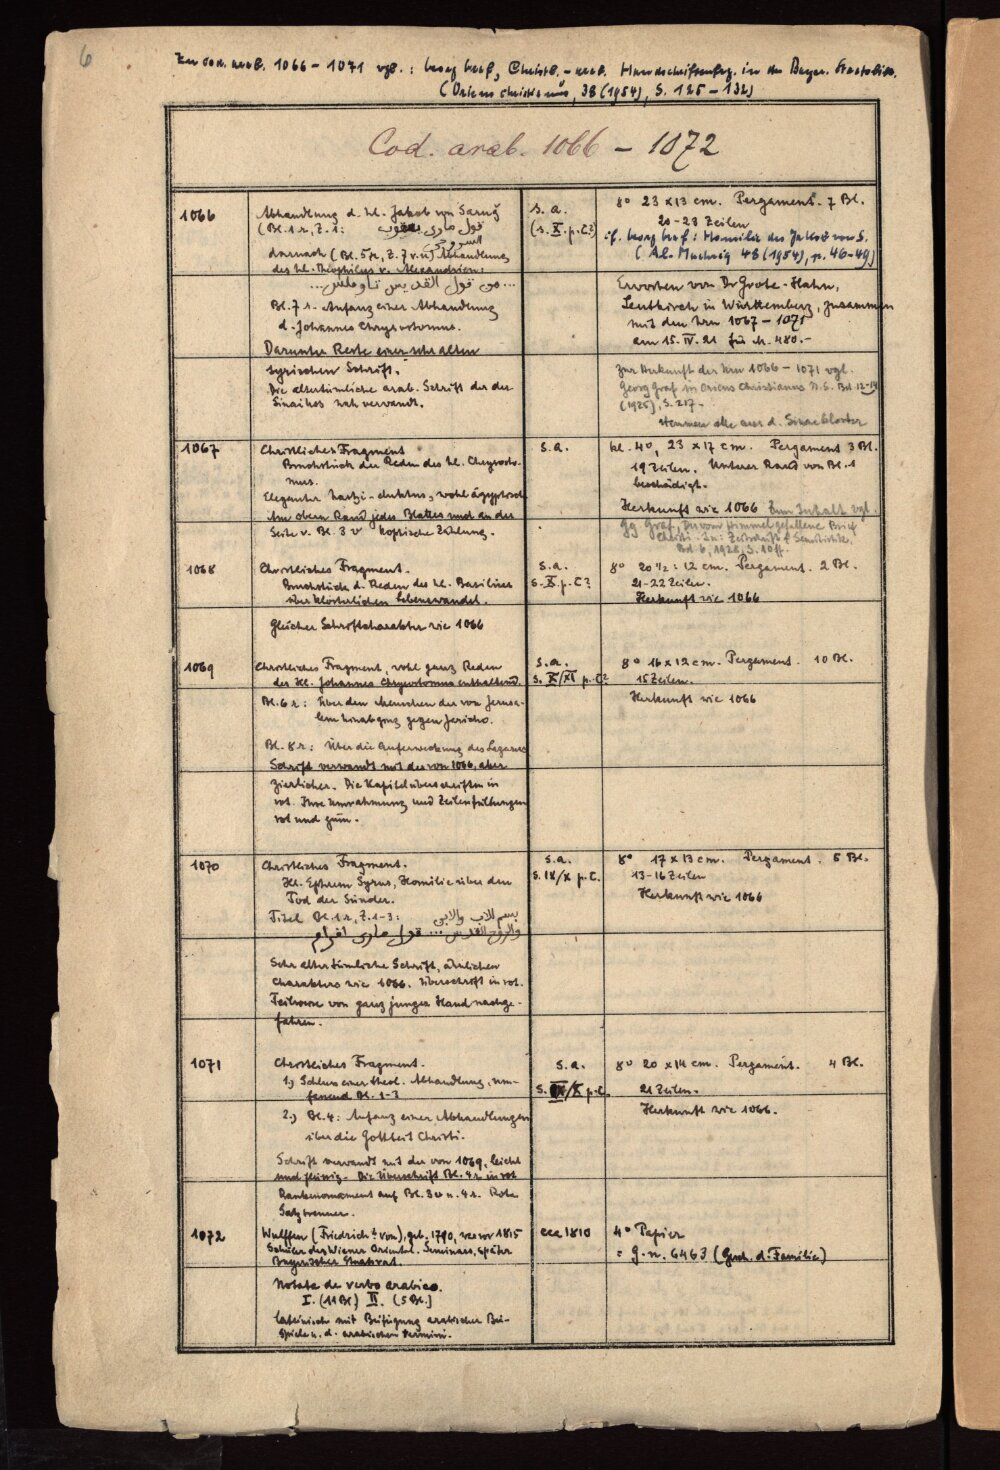 6
Zu cod. arab. 1066 – 1071 vgl.: Georg Graf, Christl.-arab. Handschriftenfrg. in der Bayer. Staatsbibl.
(Oriens christianus, 38 (1954), S. 125 – 132)
Cod. arab. 1066 – 1072
1066
Abhandlung d. hl. Jakob von Sarug
(Bl. 1 r, Z. 1: قول ماري يعقوب
السروجي
darnach (Bl. 5r, Z. 7 v.u) Abhandlung
des hl. Theophilus v. Alexandrien:
...من قول القديس تاوفلس...
Bl. 7 r. Anfang einer Abhandlung
d. Johannes Chrysostomus.
Darunter Reste einer sehr alten
syrischen Schrift.
Die altertümliche arab. Schrift der des
Sinaikos nah verwandt.
s. a.
(s. X. p. C?)
8° 23 x 13 cm. Pergament. 7 Bl.
20-23 Zeilen
cf. Georg Graf: Homilie des Jakob von S.
(Al-Machriq 48 (1954), p. 46-49)
Erworben von Dr Grote-Hahn,
Leutkirch in Württemberg, zusammen
mit den Nrn 1067 – 1071
am 15. IV. 21 für M. 480.-
Zur Herkunft der Nrn 1066 – 1071 vgl.
Georg Graf in Oriens Christianus N.S. Bd. 12-14
(1925), S. 217.
stammen alle aus d. Sinaikloster
1067
Christliches Fragment
Bruchstück der Reden des hl. Chrysosto-
mus.
Eleganter Naschi-duktus, wohl ägyptisch
Am obern Rand jedes Blattes und an der
Seite v. Bl. 3 v koptische Zählung.
s. a.
kl. 4°, 23 x 17 cm. Pergament 3 Bl.
19 Zeilen. Unterer Rand von Bl. 1
beschädigt.
Herkunft wie 1066 Zum Inhalt vgl.
Gg Graf, Der vom Himmel gefallene Brief
Christi. In: Zeitschrift f. Semitistik,
Bd. 6, 1928, S. 10 ff.
1068
Christliches Fragment.
Bruchstück d. Reden des hl. Basilius
über klösterlichen Lebenswandel.
Gleicher Schriftcharakter wie 1066
s. a.
s. X. p. C?
8° 20 1/2 : 12 cm. Pergament. 2 Bl.
21-22 Zeilen.
Herkunft wie 1066
1069
Christliches Fragment, wohl ganz Reden
des Hl. Johannes Chrysostomus enthaltend.
Bl. 6 r: Über den Menschen der von Jerusa-
lem hinabging gegen Jericho.
Bl. 8 r: Über die Auferweckung des Lazarus
Schrift verwandt mit der von 1066, aber
zierlicher. Die Kapitelüberschriften in
rot. Ihre Umrahmung und Zeilenfüllungen
rot und grün.
s. a.
s. X/XI p. C?
8° 16 x 12 cm. Pergament. 10 Bl.
15 Zeilen.
Herkunft wie 1066
1070
Christliches Fragment.
Hl. Ephrem Syrus, Homilie über den
Tod der Sünder.
Titel Bl. 1 r, Z. 1-3: بسم الاب والابن
والروح القدس ... قول ماري افرام
Sehr altertümliche Schrift, ähnlichen
Charakters wie 1066. Überschrift in rot.
Teilweise von ganz junger Hand nachge-
fahren.
s. a.
s. IX/X p. C.
8° 17 x 13 cm. Pergament. 5 Bl.
13-16 Zeilen
Herkunft wie 1066
1071
Christliches Fragment.
1.) Schluss einer theol. Abhandlung, um-
fassend Bl. 1-3
2.) Bl. 4: Anfang einer Abhandlungen
über die Gottheit Christi.
Schrift verwandt mit der von 1069, leicht
und flüssig. Die Überschrift Bl. 4 r in rot
Rankenornament auf Bl. 3 v u. 4 r. Rote
Satztrenner.
s. a.
s. IX/X p. C.
8° 20 x 14 cm. Pergament. 4 Bl.
21 Zeilen.
Herkunft wie 1066.
1072
Wulffen (Friedrich von), geb. 1790, war vor 1815
Schüler des Wiener Oriental. Seminars, später
Bayerischer Staatsrat.
Notata de verbo arabico.
I. (11 Bl.) II. (5 Bl.)
Lateinisch mit Beifügung arabischer Bei-
spiele u. d. arabischen Termini.
cca 1810
4° Papier
= g. n. 6463 (Gesch. d. Familie)